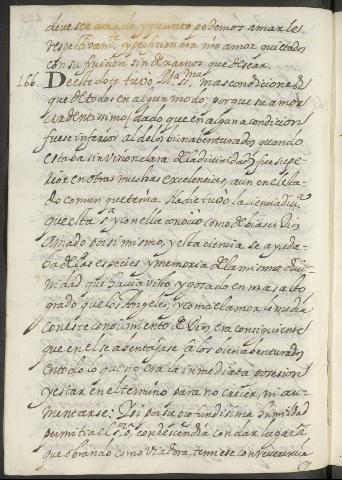 deve ser amado, y quanto podemos amarle
respectivamte. y perficionara mo amor quietados
con su fruicion sin dexarnos que desear.
166. De este dote tuvo Ma. sma. mas condiciones
que de todos en algun modo; porque su amor
ardentissimo (dado que en alguna condicion
fuese inferior al de los bienabenturados, quando
estaba sin vision clara de la divinidad) fue supe
rior en otras muchas excelencias, aun en el esta
do comun que tenia. Nadie tuvo la ciencia divina
que esta Sa. y con ella conocio como debia ser Dios
Amado por si mismo, y esta ciencia se ayuda
ba de las especies y memoria de la misma divi
nidad que havia visto, y gozado en mas alto
grado que los Angeles; y como el amor lo media
con este conocimiento de Dios, era consiguiente
que en el se abentajase â los bienabenturados
en todo lo que no era la inmediata posesion
y estar en el termino para no crecer, ni au
mentarse: Y si por su profundisima humildad
permitia el Sr. condescendia con dar lugar a
que obrando como viadora, temiese con reverencia